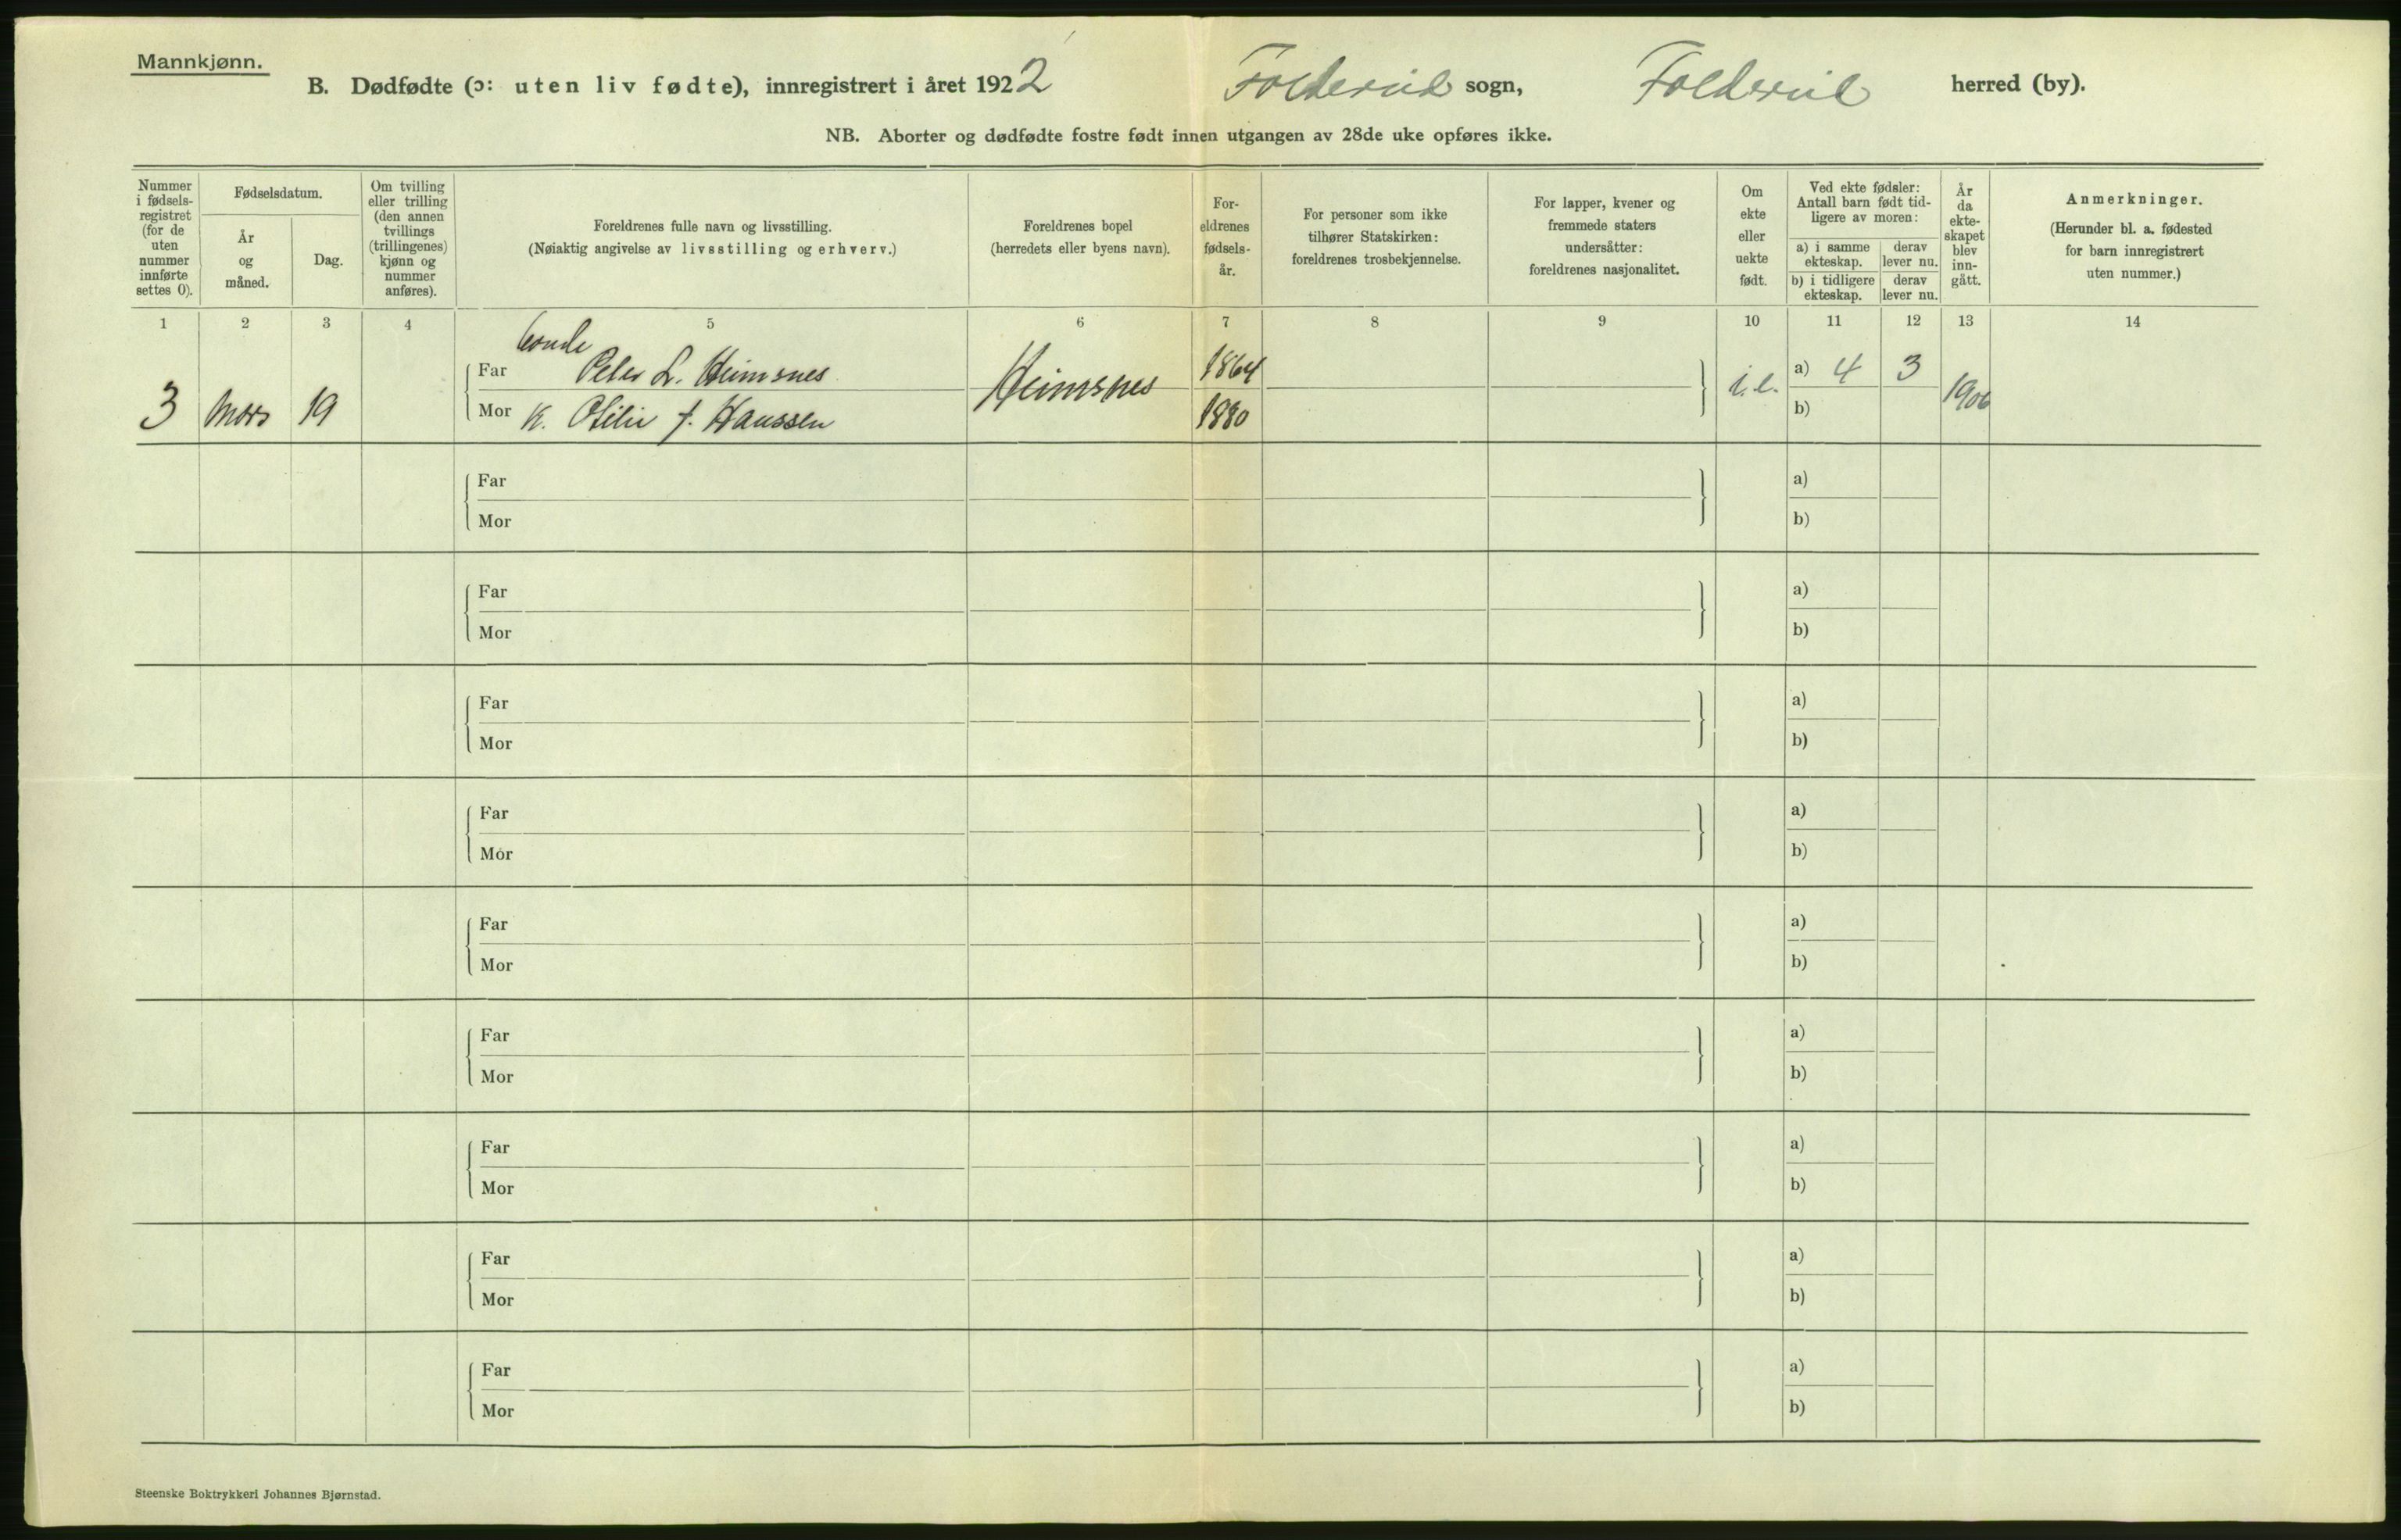 Mannkjønn.
B. Dødfødte (ɔ: uten liv fødte), innregistrert i året 1922 Foldereid sogn, Foldereid herred (by).
NB. Aborter og dødfødte fostre født innen utgangen av 28de uke opføres ikke.
Nummer i fødsels-registret (for de uten nummer innførte settes 0).
Fødselsdatum.
År og måned.
Dag.
Om tvilling eller trilling (den annen tvillings (trillingenes) kjønn og nummer anføres).
Foreldrenes fulle navn og livsstilling.
(Nøiaktig angivelse av livsstilling og erhverv.)
Foreldrenes bopel
(herredets eller byens navn).
For-eldrenes fødsels-år.
For personer som ikke tilhører Statskirken: foreldrenes trosbekjennelse.
For lapper, kvener og fremmede staters undersåtter: foreldrenes nasjonalitet.
Om ekte eller uekte født.
Ved ekte fødsler: Antall barn født tid-ligere av moren:
a) i samme ekteskap. derav lever nu.
b) i tidligere ekteskap. derav lever nu.
År da ekte-skapet blev inn-gått.
Anmerkninger.
(Herunder bl. a. fødested for barn innregistrert uten nummer.)
1 2 3 4 5 6 7 8 9 10 11 12 13 14
bonde
Far Peter L. Heimsnes 1864 a) 4 3
3 Mars 19 Heimsnes i.e. 1906
Mor K. Otilie f. Hanssen 1880 b)
Far a)
Mor b)
Far a)
Mor b)
Far a)
Mor b)
Far a)
Mor b)
Far a)
Mor b)
Far a)
Mor b)
Far a)
Mor b)
Far a)
Mor b)
Far a)
Mor b)
Steenske Boktrykkeri Johannes Bjørnstad.